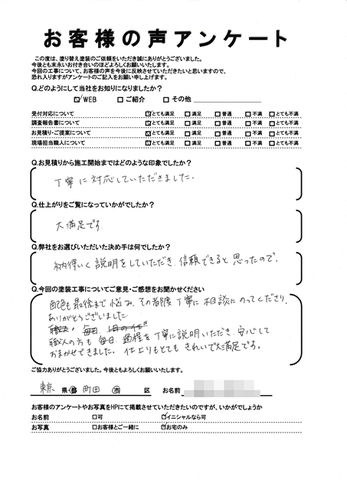 お客様の声アンケート
この度は、塗り替え塗装のご依頼をいただき誠にありがとうございました。
今後とも末永いお付き合いのほどよろしくお願いいたします。
今回の工事について、お客様の声を今後に反映させていただきたいと思いますので、
恐れ入りますがアンケートのご記入をお願い申し上げます。
Q.どのようにして当社をお知りになりましたか?
☑WEB □ご紹介 □その他
受付対応について ☑とても満足 □満足 □普通 □不満 □とても不満
調査報告書について ☑とても満足 □満足 □普通 □不満 □とても不満
お見積り・ご提案について ☑とても満足 □満足 □普通 □不満 □とても不満
現場担当職人について ☑とても満足 □満足 □普通 □不満 □とても不満
Q.お見積りから施工開始まではどのような印象でしたか?
丁寧に対応していただきました。
Q.仕上がりをご覧になっていかがでしたか?
大満足です。
Q.弊社をお選びいただいた決め手は何でしたか?
納得いく説明をしていただき、信頼できると思ったので。
Q.今回の塗装工事についてご意見・ご感想をお聞かせください
配色も最後まで悩み、その都度丁寧に相談にのってくださり、
ありがとうございました
職人の方も毎日過程を丁寧に説明いただき、安心して
おまかせできました。仕上りもとてもきれいで大満足です。
ご協力ありがとうございました。今後ともよろしくお願いいたします。
東京 県・都 町田 市 区 お名前
お客様のアンケートやお写真をHPにて掲載させていただきたいのですが、いかがでしょうか
お名前 □可 ☑イニシャルなら可
お写真 □お客様とご一緒に ☑お宅のみ